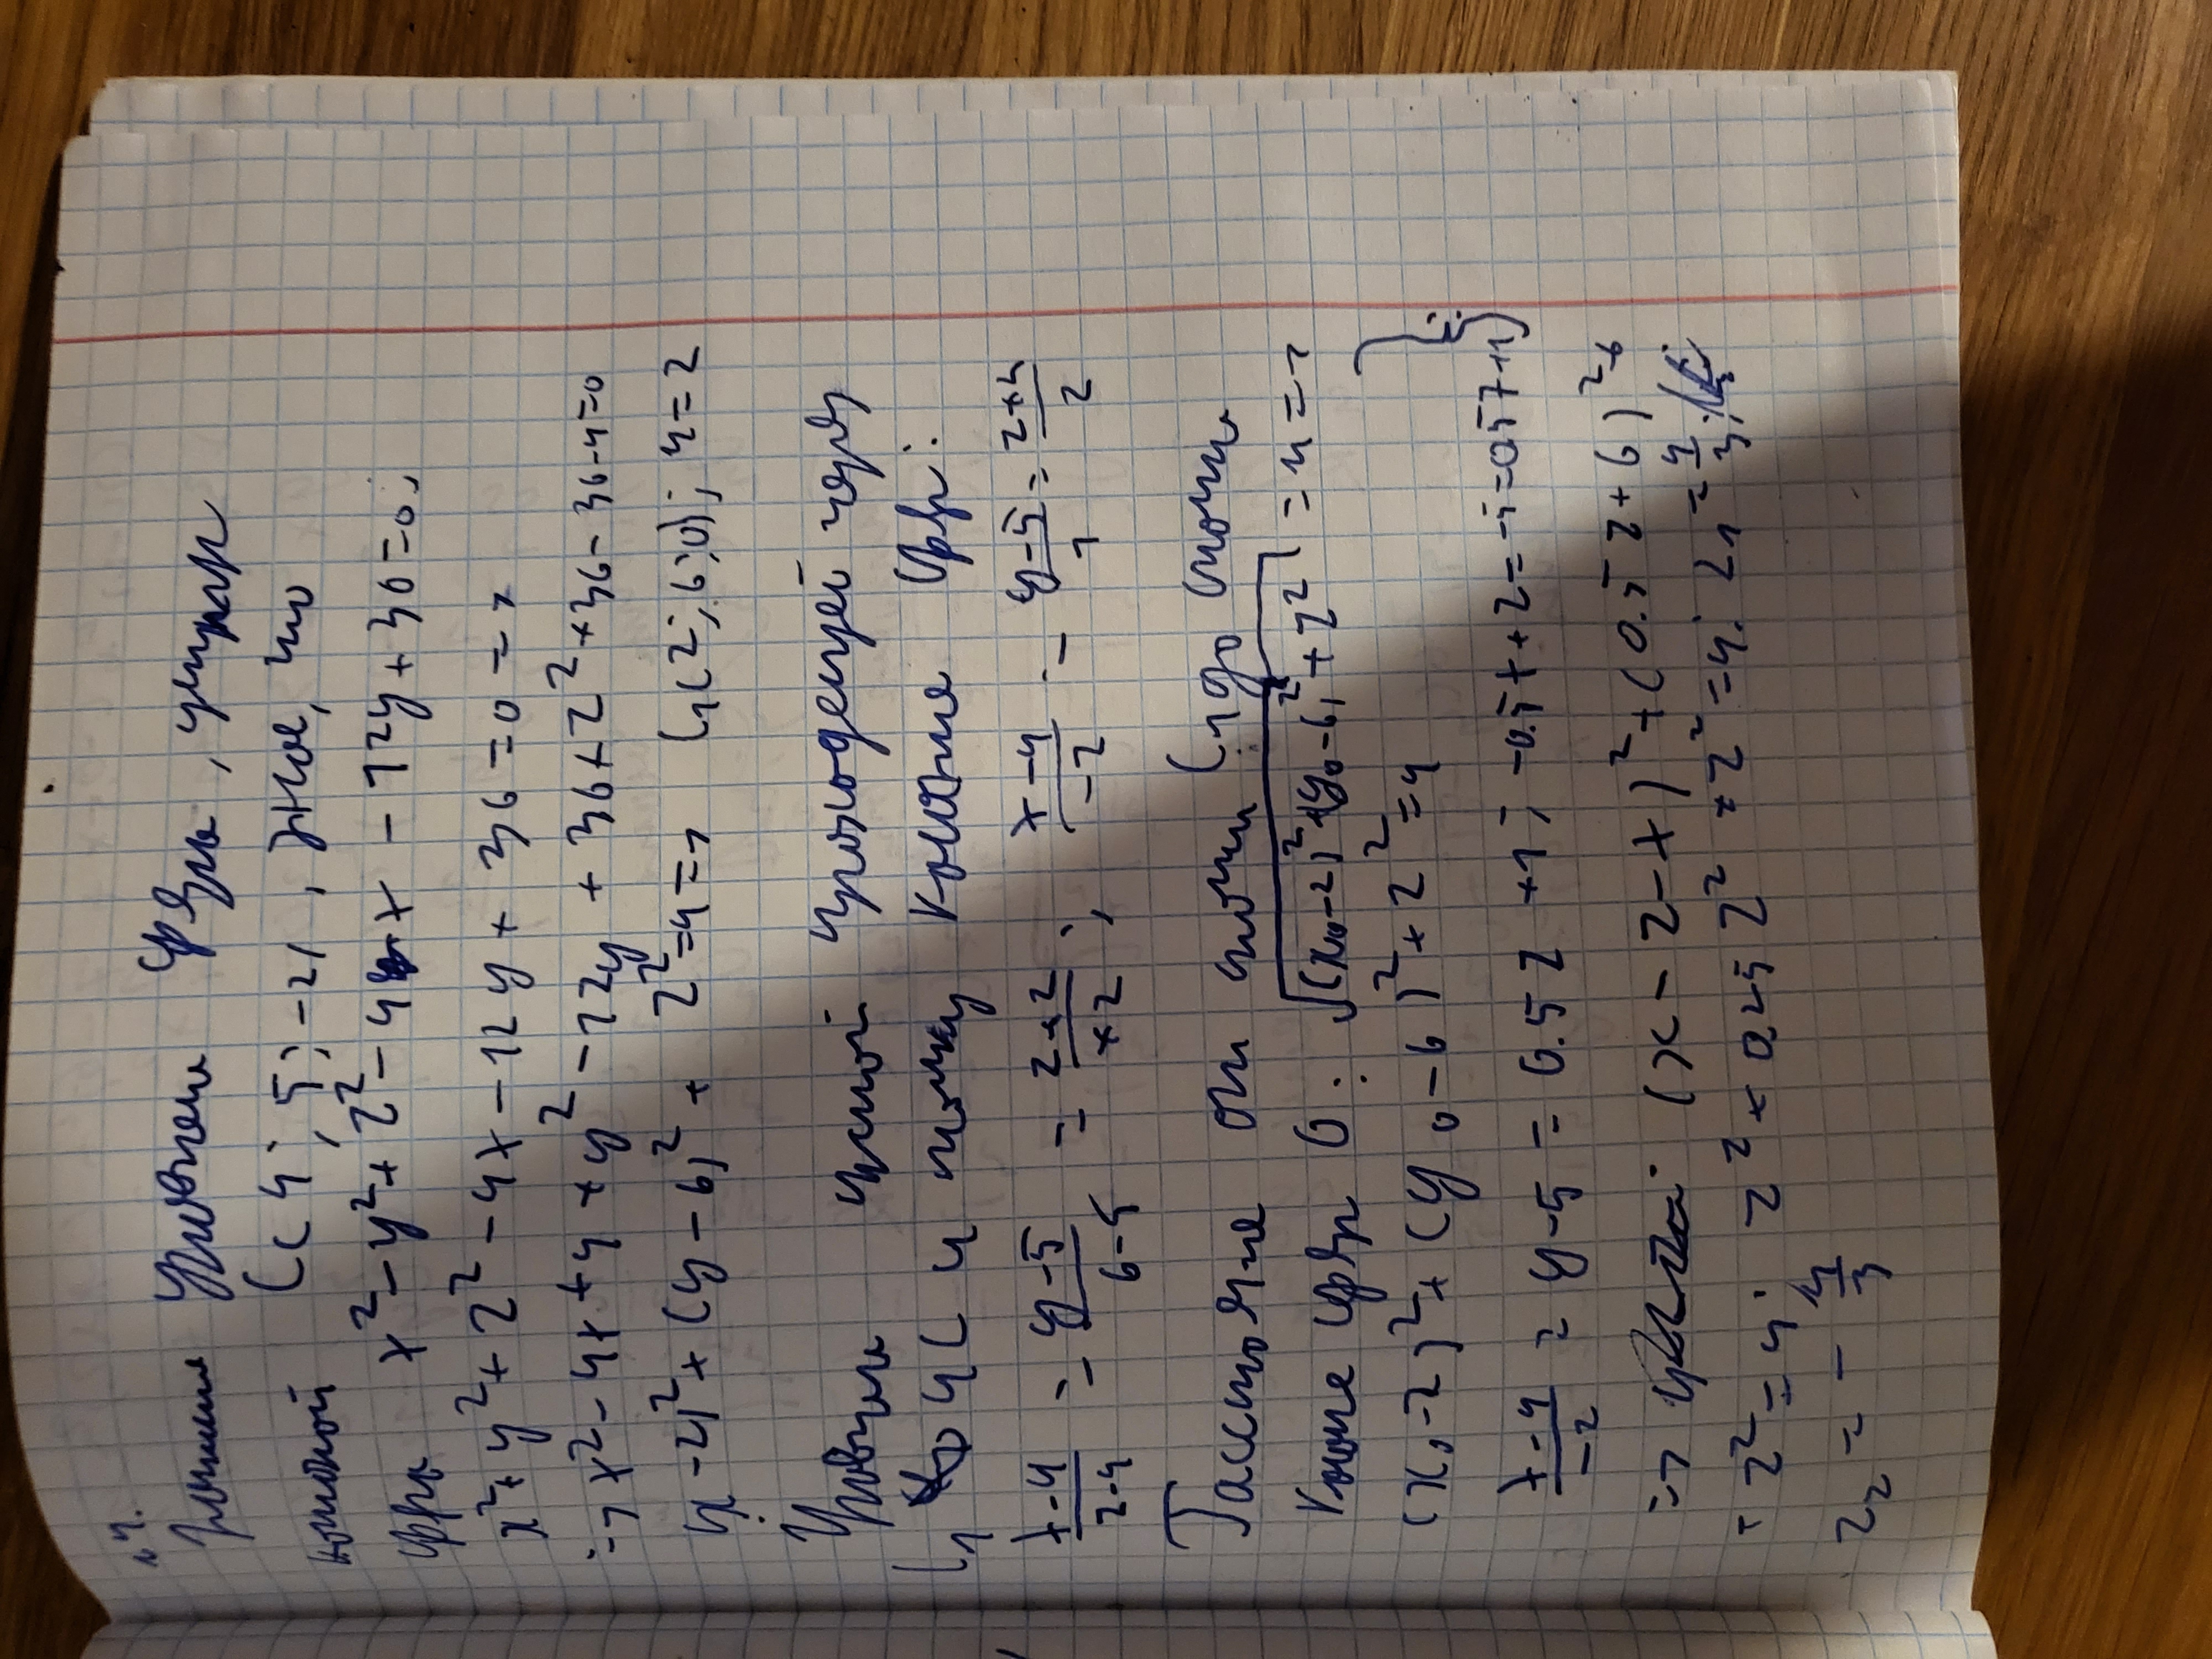 №4.
уравнение сферы, центр
которой C(4; 5; -2), зная, что
сферы x² - y² + z² - 4x - 12y + 36 = 0;
x² + y² + z² - 4x - 12y + 36 = 0 =>
=> x² - 4x + 4 + y² - 12y + 36 + z² + 36 - 36 - 4 = 0
(x - 2)² + (y - 6)² + z² = 4 => C₁(2; 6; 0); r = 2
проходящей через
C₁ и C и точку касания сфер:
(x-4)/(2-4) = (y-5)/(6-5) = (z+2)/(+2); (x-4)/(-2) = (y-5)/1 = (z+2)/2
Расстояние от точки C₁ до точки
сфер O: √((x₀-2)² + (y₀-6)² + z²) = r =>
(x₀ - 2)² + (y₀ - 6)² + z² = 4
(x-4)/(-2) = y - 5 = 0.5z + 1; -0.5x + 2 =
=> (0.5z + 6)² +
z² = 4; z² + 0.25z² + z² = 4; z₁ = 4/3;
z₂ = - 4/3